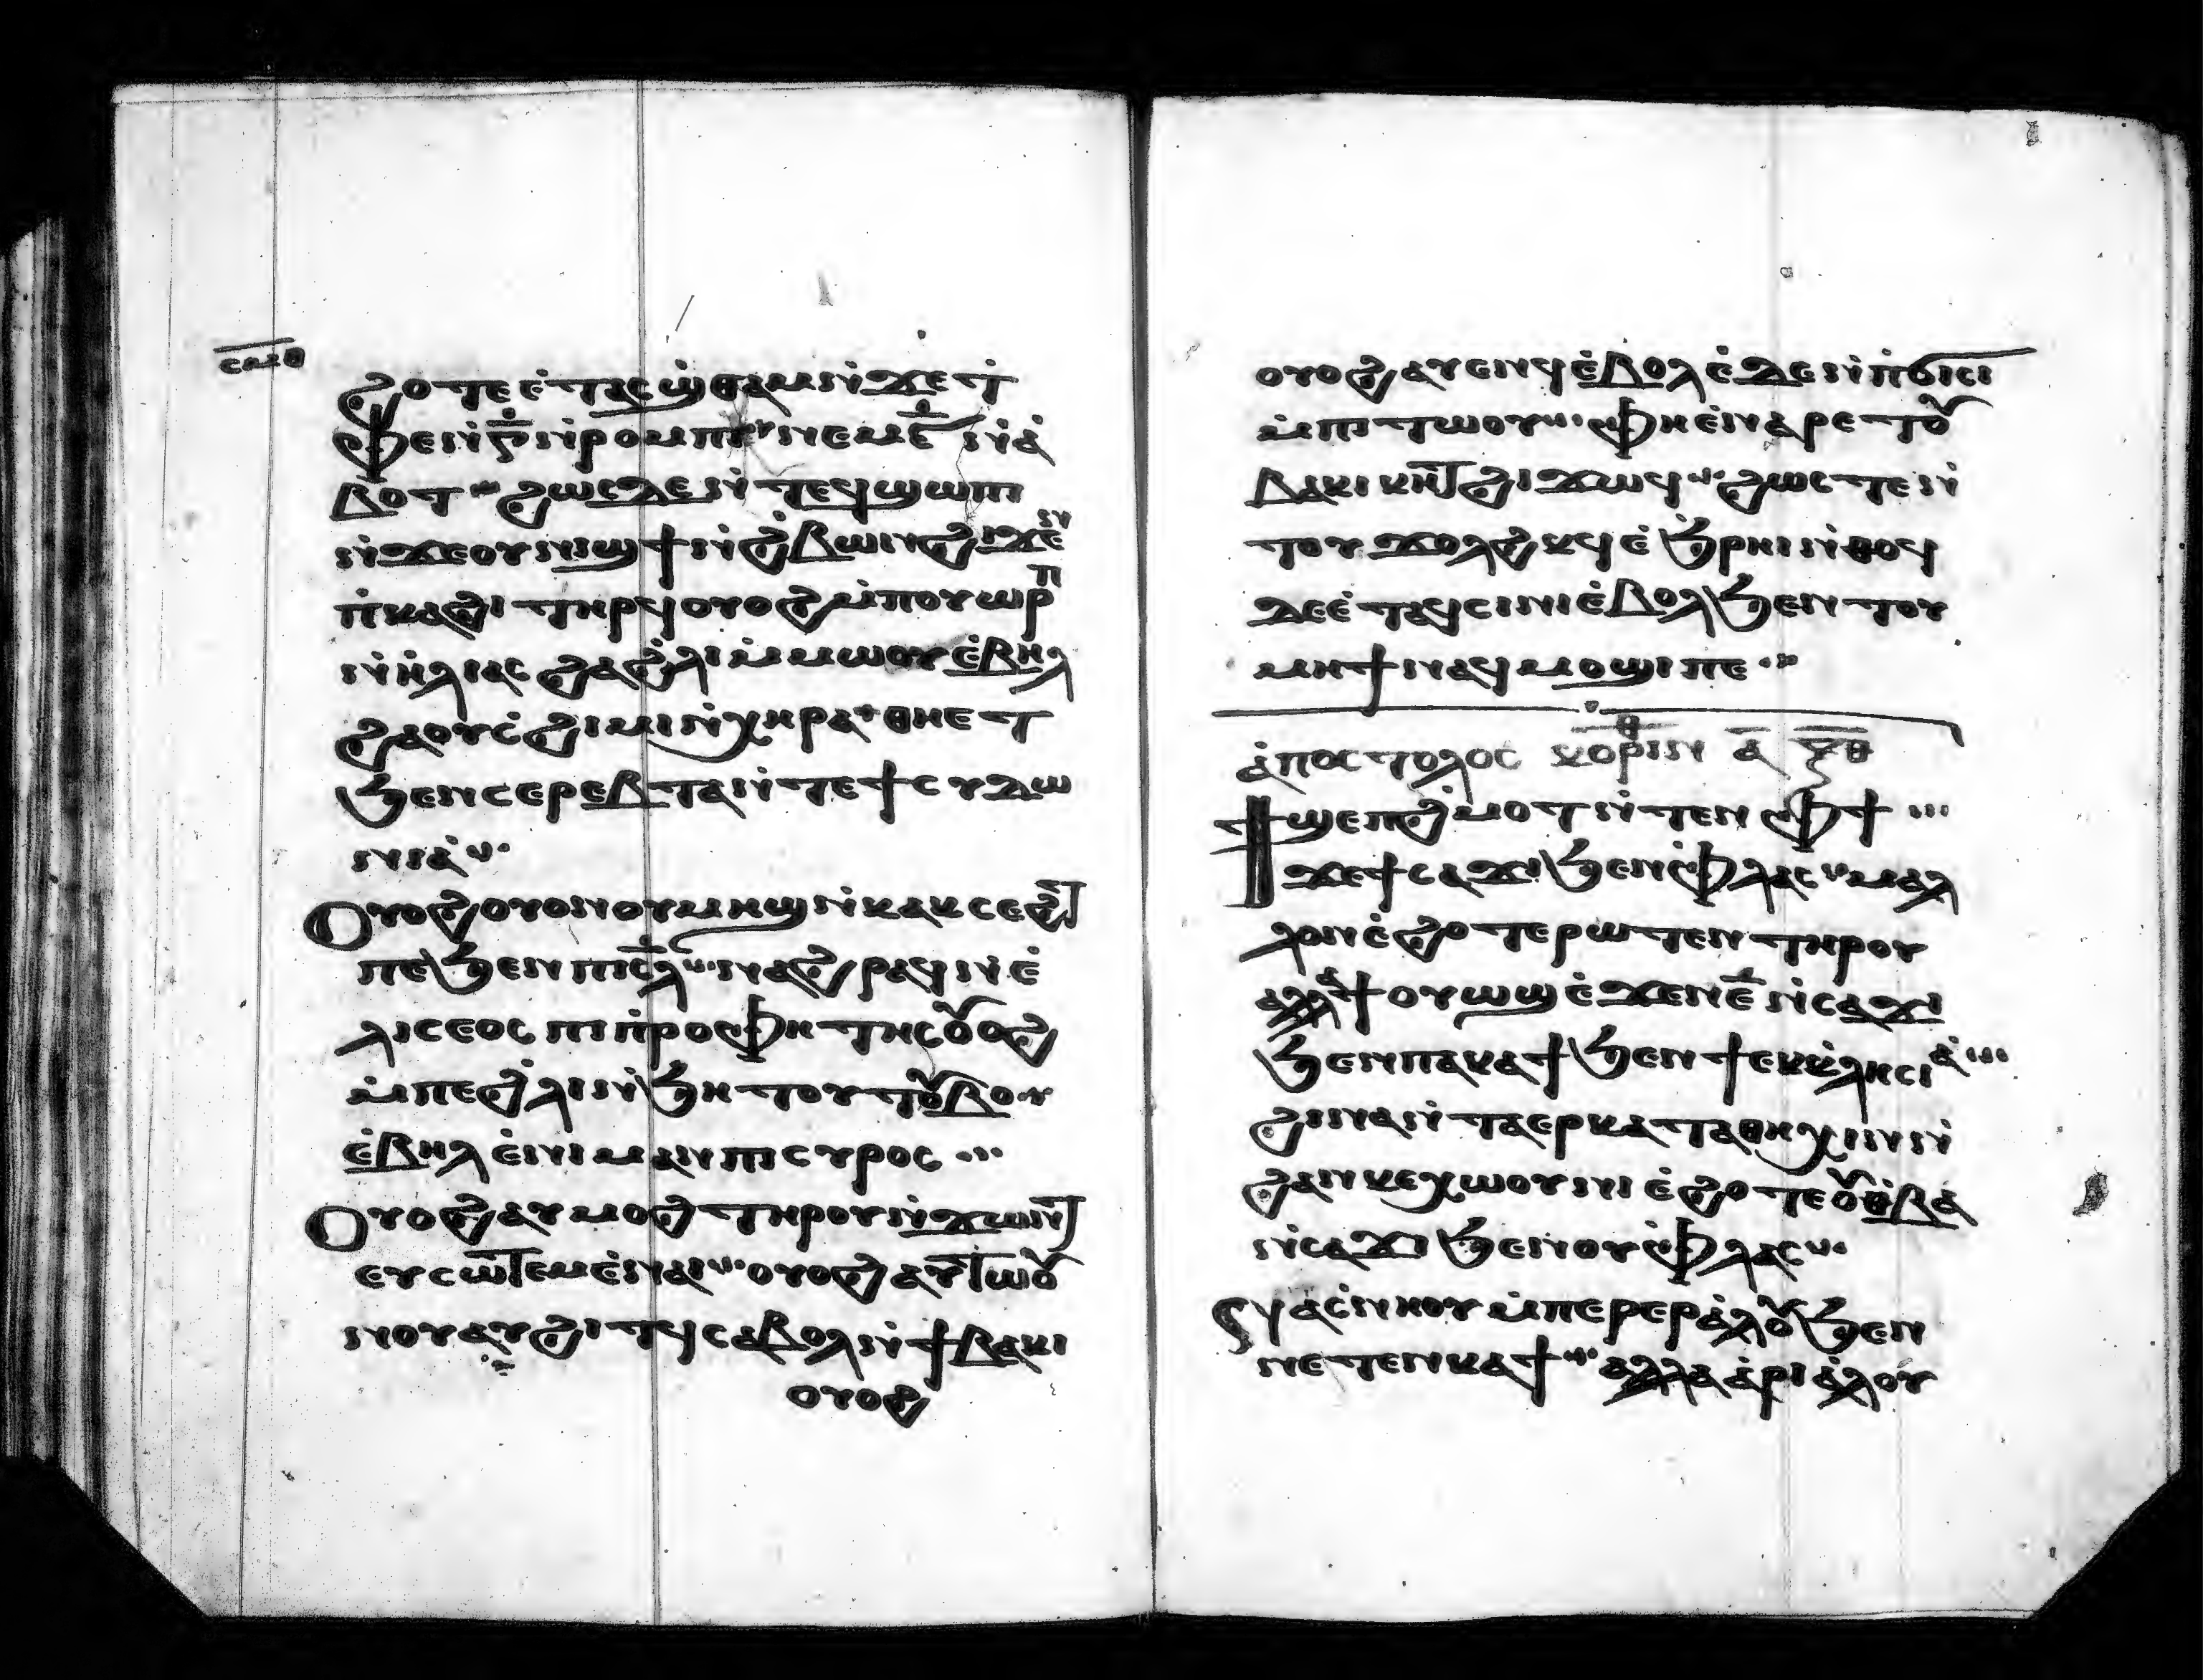 ⲥⲙⲑ
ϩⲟⲧⲉ ⲉ̇ⲧⲁⲥϣ̇ⲑⲁⲙ ⲛ̇ϫⲉ ⲧ̇
ⲫⲉ ⲛ̇ⲅ̅ ⲛ̇ⲣⲟⲙⲡⲓ ⲛⲉⲙ ⲉ̅ ⲛ̇ⲁ̇
ⲃⲟⲧ ϩⲱⲥⲇⲉ ⲛ̇ⲧⲉϥϣⲱⲡⲓ
ⲛ̇ϫⲉ ⲟⲩⲛⲓϣϯ ⲛ̇ϩ̇ⲃⲱⲛ ϩⲓϫⲉ̇ⲛ
ⲡ̇ⲕⲁϩⲓ ⲧⲏⲣϥ ⲟⲩⲟϩ ⲙ̇ⲡⲟⲩⲱⲣⲡ
ⲛ̇ⲏ̇ⲗⲓⲁⲥ ϩⲁ ϩ̇ⲗⲓ ⲙ̇ⲙⲱⲟⲩ ⲉ̇ⲃⲏⲗ
ϩⲁ ⲟⲩⲥ̇ϩⲓⲙⲓ ⲛ̇ⲭⲏⲣⲁ ⲑⲏⲉⲧ
ϧⲉⲛ ⲥⲉⲣⲉⲃⲧⲁ ⲛ̇ⲧⲉ ϯⲥⲩⲇⲱ
ⲛⲓⲁ̇
ⲟⲩⲟϩ ⲟⲩⲟⲛ ⲟⲩⲙⲏϣ ⲛ̇ⲕⲁⲕⲥⲉϩⲧ̅
ⲡⲉ ϧⲉⲛ ⲡⲓⲥ̅ⲗ ⲛⲁϩⲣⲁϥ ⲛ̇ⲉ̇
ⲗⲓⲥⲉⲟⲥ ⲡⲓⲡ̇ⲣⲟⲫⲏⲧⲏⲥ ⲟⲩⲟϩ
ⲙ̇ⲡⲉ ϩ̇ⲗⲓ ⲛ̇ϧⲏⲧⲟⲩ ⲧⲟⲩⲃⲟ
ⲉ̇ⲃⲏⲗ ⲉ̇ⲛⲓⲙⲁⲛ ⲡⲓⲥⲩⲣⲟⲥ
ⲟⲩⲟϩ ⲁⲩⲙⲟϩ ⲧⲏⲣⲟⲩ ⲛ̇ϫⲱⲛⲧ̅
ⲉⲩⲥⲱⲧⲉⲙ ⲉ̇ⲛⲁⲓ ⲟⲩⲟϩ ⲁⲩⲧⲱⲟⲩ
ⲛⲟⲩ ⲁⲩϩⲓⲧϥ ⲥⲁⲃⲟⲗ ⲛ̇ϯⲃⲁⲕⲓ
ⲟⲩⲟϩ
ⲟⲩⲟϩ ⲁⲩⲉⲛϥ ⲉ̇ⲃⲟⲗ ⲉ̇ϫⲉⲛ ⲡ̇ϭⲓⲥⲓ
ⲙ̇ⲡⲓⲧⲱⲟⲩ ⲫⲏ ⲉ̇ⲛⲁⲣⲉ ⲧⲟⲩ
ⲃⲁⲕⲓ ⲕⲏⲧ̅ ϩⲓϫⲱϥ ϩⲱⲥⲧⲉ ⲛ̇
ⲧⲟⲩϫⲟⲗϩⲕϥ ⲉ̇ϧ̇ⲣⲏⲓ ⲛ̇ⲑⲟϥ
ⲇⲉ ⲉ̇ⲧⲁϥⲥⲓⲛⲓ ⲉ̇ⲃⲟⲗ ϧⲉⲛ ⲧⲟⲩ
ⲙⲏϯ ⲛⲁϥⲙⲟϣⲓ ⲡⲉ
ⲁ̇ⲡⲟⲥⲧⲟⲗⲟⲥ ⲕⲟⲣⲓⲛⲑ ⲁ̅ ⲝ̅ⲑ̅
ϯϣⲉⲡϩ̇ⲙⲟⲧ ⲛ̇ⲧⲉⲛ ⲫϯ
ϫⲉ ϯⲥⲁϫⲓ ϧⲉⲛ ⲫ̇ⲗⲁⲥ ⲙⲁⲗ
ⲗⲟⲛ ⲉ̇ϩⲟⲧⲉⲣⲱⲧⲉⲛ ⲧⲏⲣⲟⲩ
ⲁⲗⲗⲁ ϯⲟⲩⲱϣ ⲉ̇ϫⲉⲛ ⲉ̅ ⲛ̇ⲥⲁϫⲓ
ϧⲉⲛ ⲡⲁⲕⲁϯ ϧⲉⲛ ϯⲉⲕⲕ̇ⲗⲏⲥⲓⲁ̇
ϩⲓⲛⲁ ⲛ̇ⲧⲁⲉⲣⲕⲁⲧⲁⲑⲏⲭⲓⲛ ⲛ̇
ϩⲁⲛⲕⲉⲭⲱⲟⲩⲛⲓ ⲉ̇ϩⲟⲧⲉ ⲟⲩⲑ̇ⲃⲁ
ⲛ̇ⲥⲁϫⲓ ϧⲉⲛ ⲟⲩⲫ̇ⲗⲁⲥ
ⲛⲁⲥ̇ⲛⲏⲟⲩ ⲙ̇ⲡⲉⲣⲉⲣⲁ̇ⲗⲟⲩ ϧⲉⲛ
ⲛⲉⲧⲉⲛⲕⲁϯ ⲁⲗⲗⲁ ⲁ̇ⲣⲓⲁ̇ⲗⲟⲩ